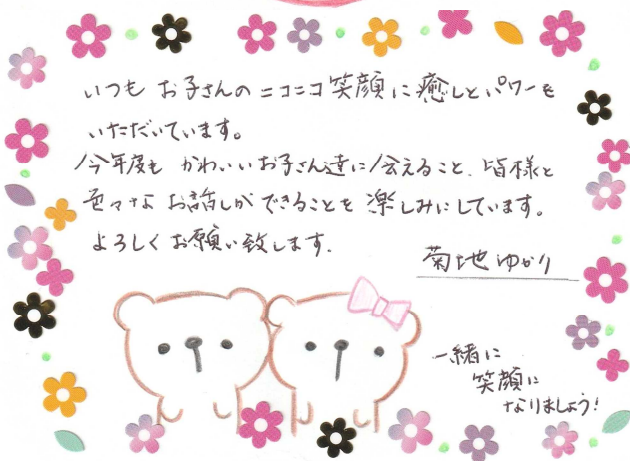 いつも お子さんのニコニコ笑顔に癒しとパワーを
いただいています。
今年度も かわいいお子さん達に会えること、皆様と
色々な お話しができることを楽しみにしています。
よろしくお願い致します.
菊地ゆかり
一緒に
笑顔に
なりましょう!